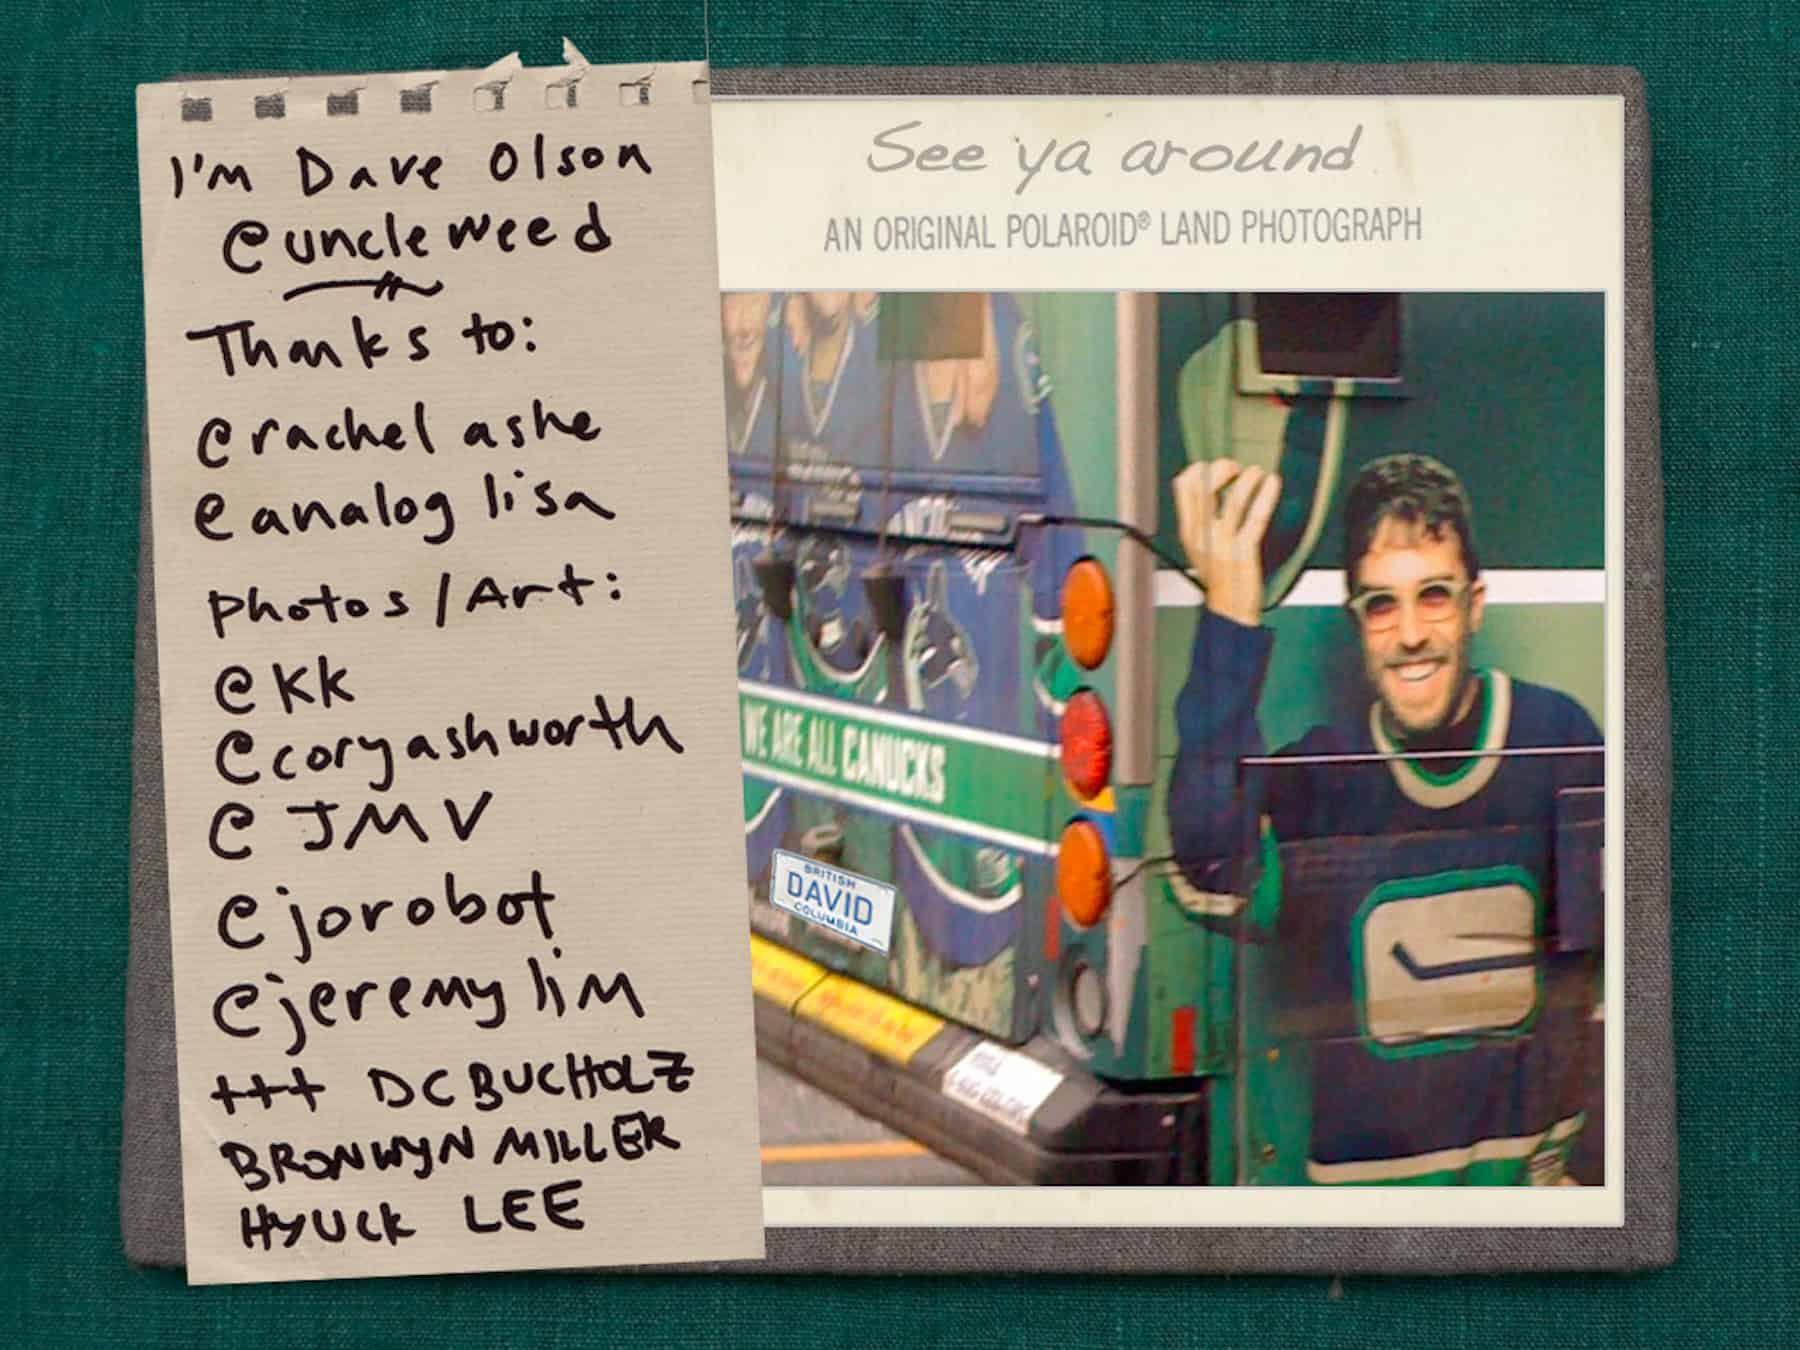 I'm Dave Olson
@uncleweed
Thanks to:
@rachelashe
@analoglisa
Photos/Art:
@KK
@coryashworth
@JMV
@jorobot
@jeremylim
+++ DC BUCHOLZ
BRONWYN MILLER
HYUCK LEE
See ya around
AN ORIGINAL POLAROID® LAND PHOTOGRAPH
WE ARE ALL CANUCKS
BRITISH
DAVID
COLUMBIA